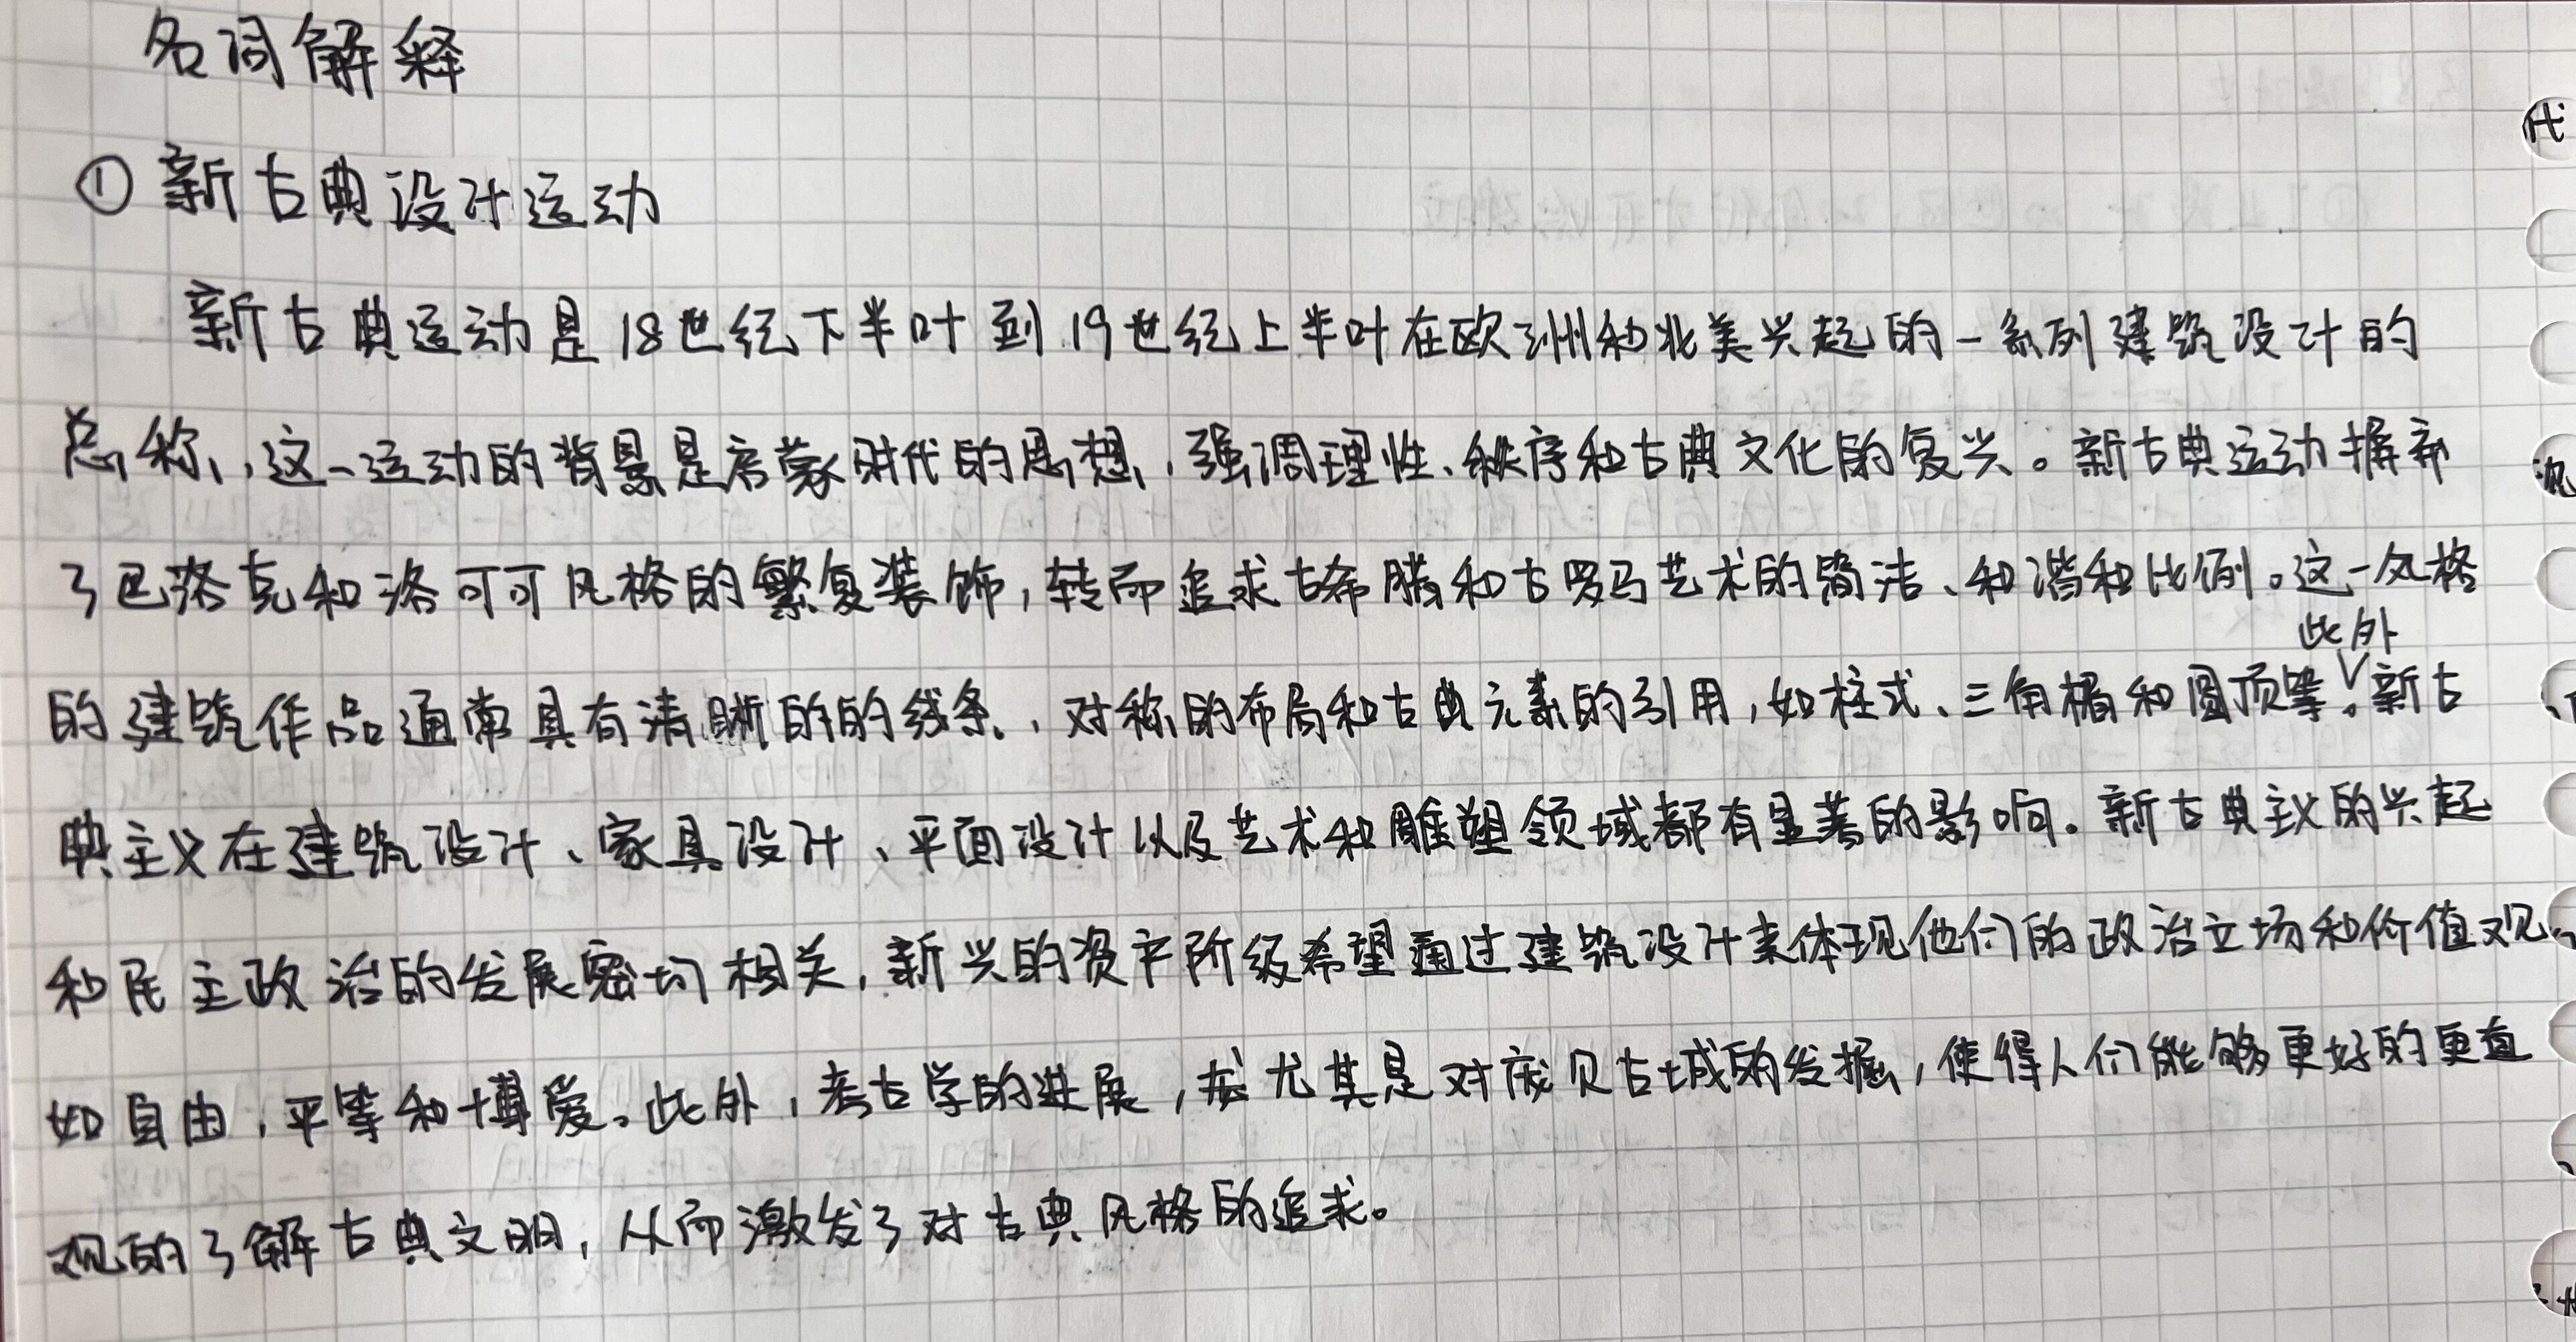 名词解释
① 新古典设计运动
新古典运动是18世纪下半叶到19世纪上半叶在欧洲和北美兴起的一系列建筑设计的
总称，这一运动的背景是启蒙时代的思想，强调理性、秩序和古典文化的复兴。新古典运动摒弃
了巴洛克和洛可可风格的繁复装饰，转而追求古希腊和古罗马艺术的简洁、和谐和比例。这一风格
此外
的建筑作品通常具有清晰的的线条，对称的布局和古典元素的引用，如柱式、三角楣和圆顶等。新古
典主义在建筑设计、家具设计、平面设计以及艺术和雕塑领域都有显著的影响。新古典主义的兴起
和民主政治的发展密切相关，新兴的资产阶级希望通过建筑设计来体现他们的政治立场和价值观
如自由，平等和博爱。此外，考古学的进展，尤其是对庞贝古城的发掘，使得人们能够更好的更直
观的了解古典文明，从而激发了对古典风格的追求。
代